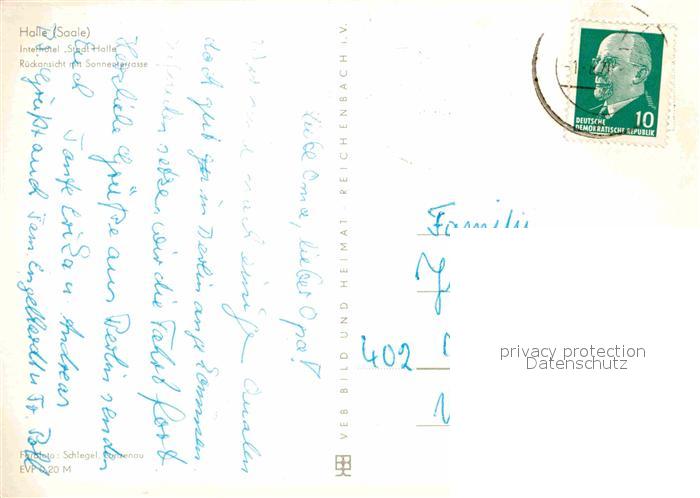 Halle (Saale)
Interhotel „Stadt Halle"
Rückansicht mit Sonnenterrasse
Liebe Oma, lieber Opa!
nach einigen Qualen
doch gut in Berlin angekommen
setzen wir die Fahrt fort
Herzliche Grüße aus Berlin senden
Euch Tante u. Andreas
Grüßt auch Fam. Engelhardt u. Fr.
Farbfoto: Schlegel,
EVP 0,20 M
VEB BILD UND HEIMAT · REICHENBACH i. V.
10
DEUTSCHE
DEMOKRATISCHE REPUBLIK
Familie
402
privacy protection
Datenschutz